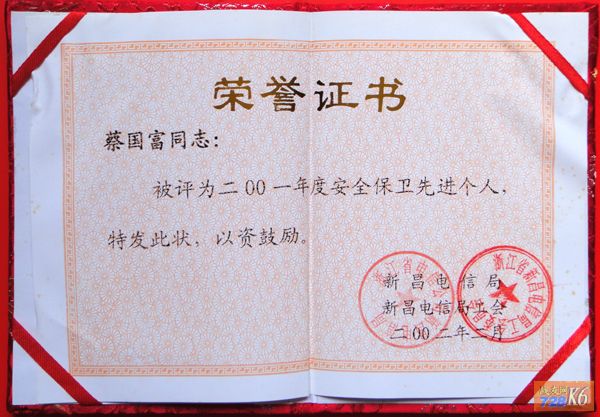 荣誉证书
蔡国富同志：
被评为二00一年度安全保卫先进个人，
特发此状，以资鼓励。
新昌电信局
新昌电信局工会
二00二年二月
浙江省新昌电信局工会
战友网
728K6